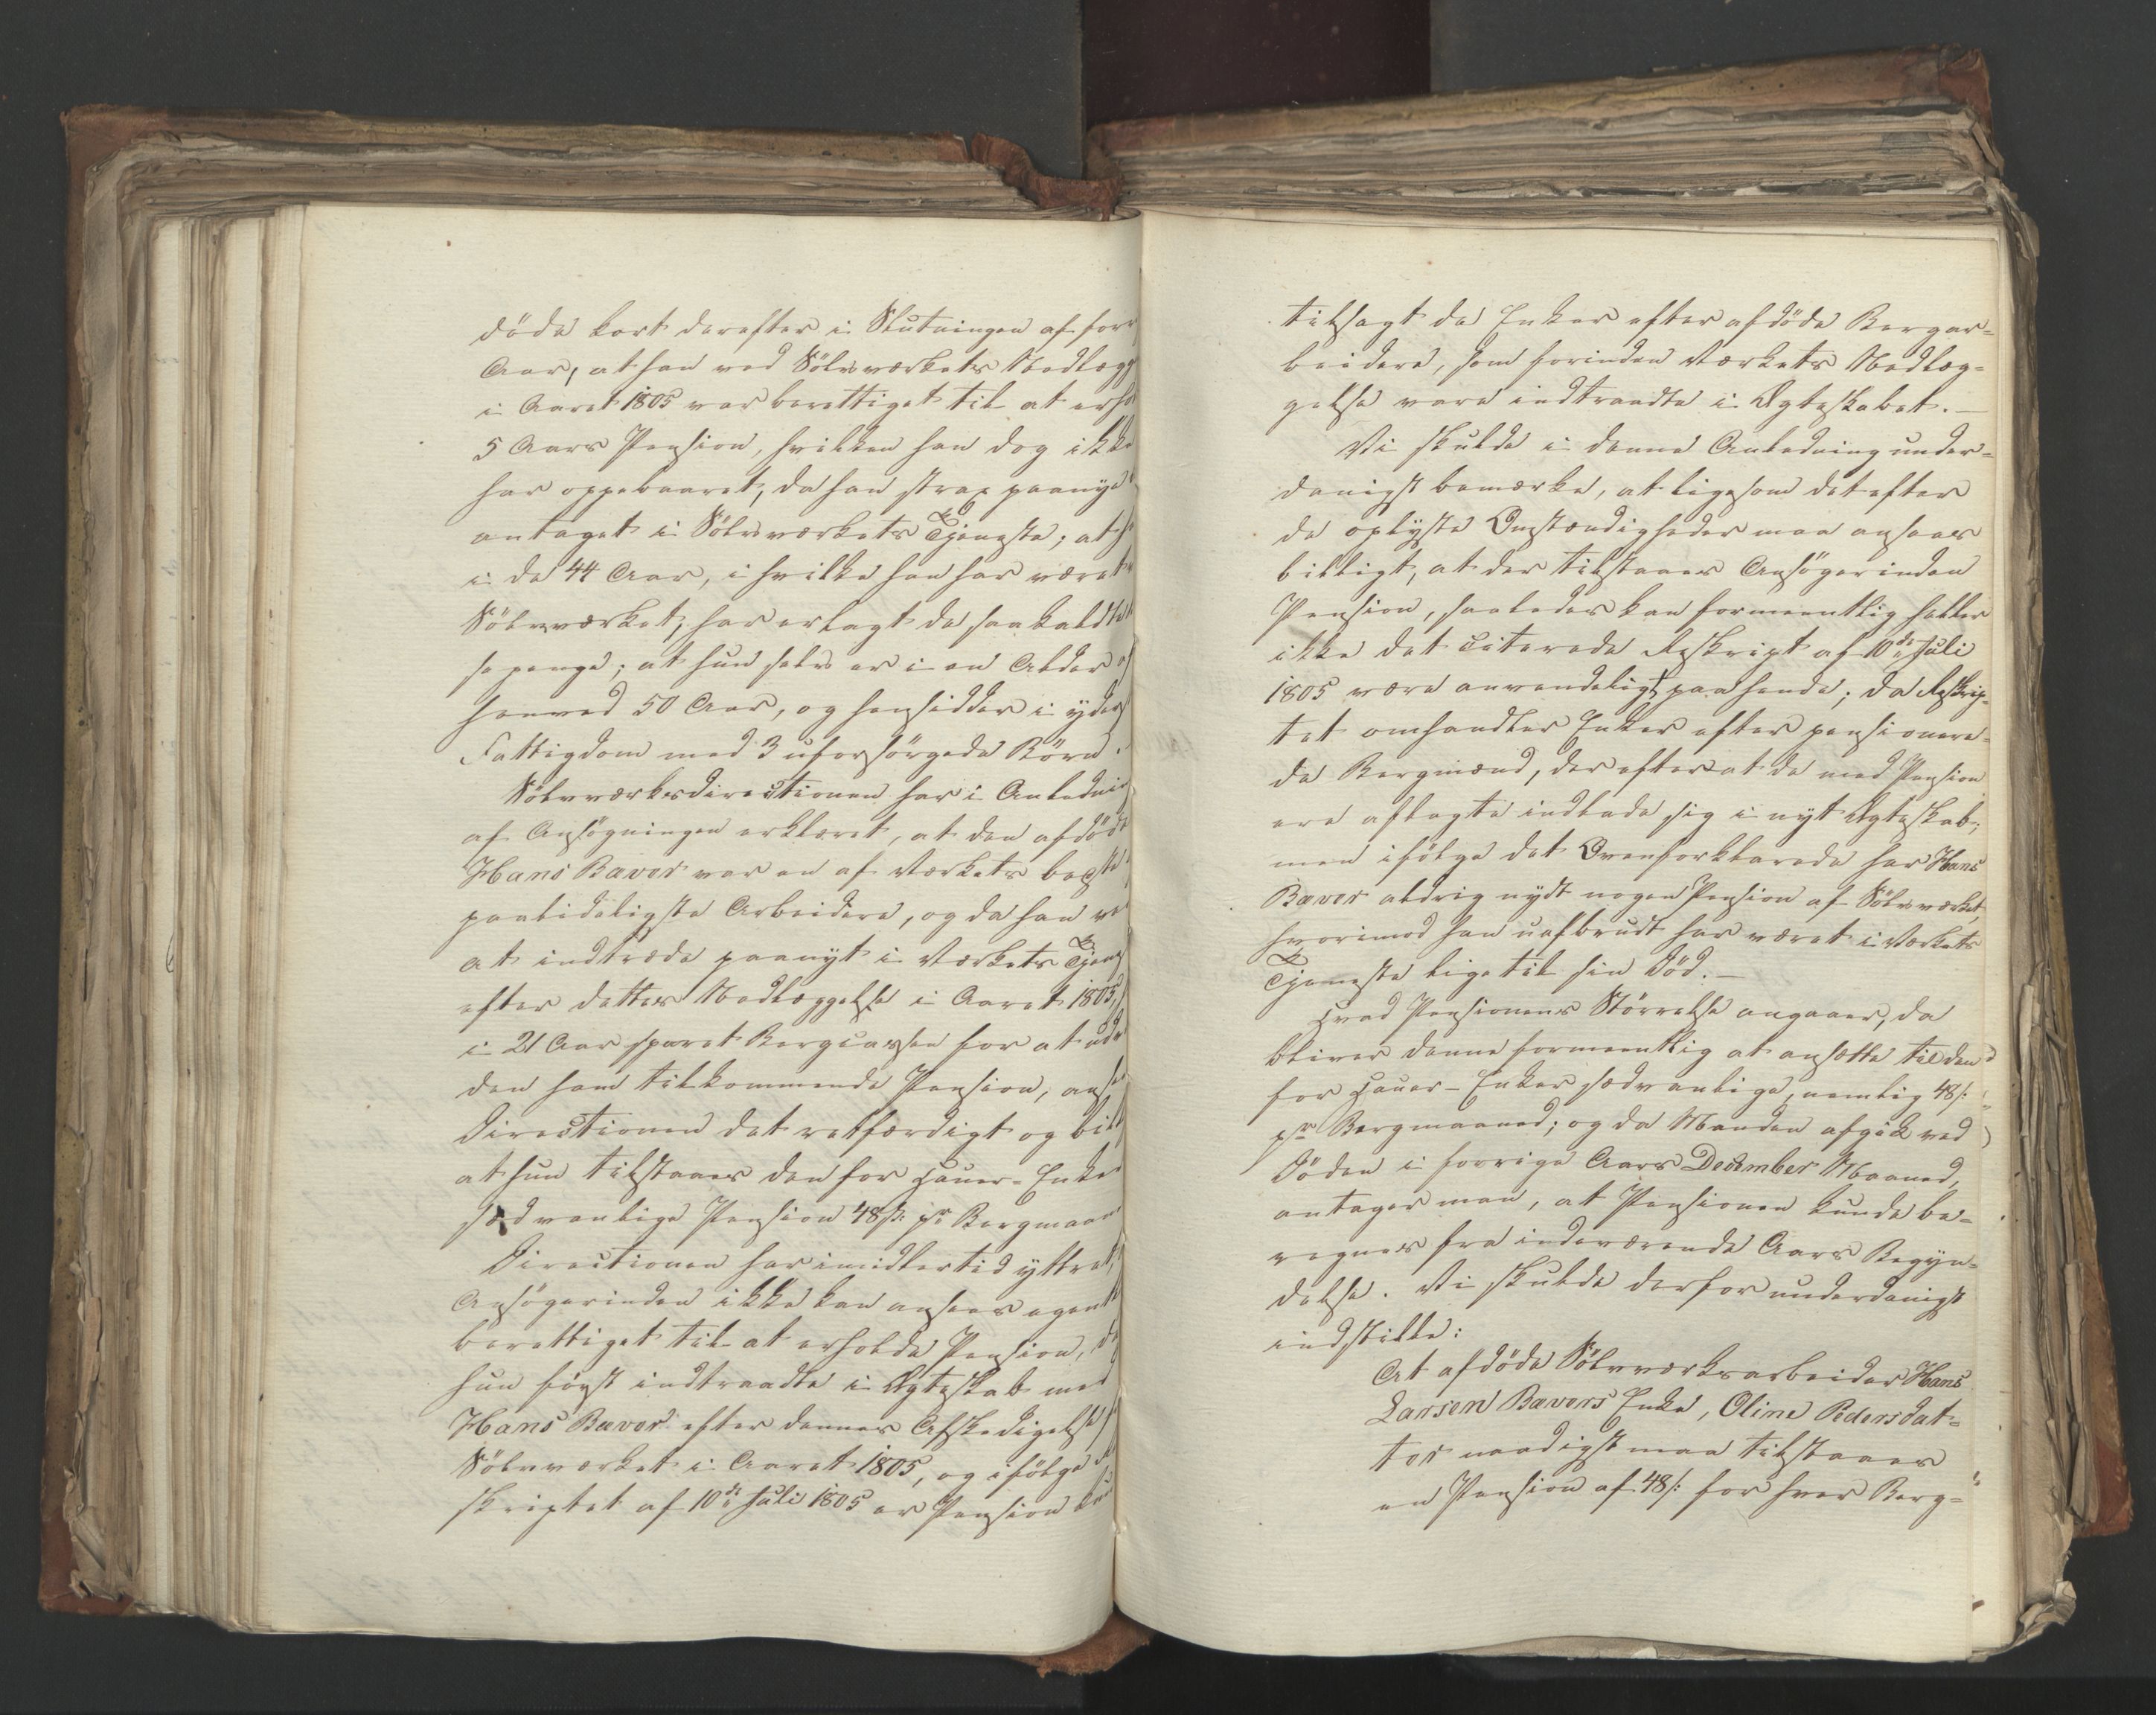 döde kort derefter i Slutningen af forr
Aar, at han ved Sölvværkets Nedlægg
i Aaret 1805 var berettiget til at erho
5 Aars Pension, hvilken han dog ikke
har oppebaaret, da han strax paanye
antaget i Sölvværkets Tjeneste; at h
i de 44 Aar, i hvilke han har været
Sölvværket, har erlagt de saakaldte
sepenge; at hun selv er i en Alder af
henved 50 Aar, og hensidder i yders
Fattigdom med 3 uforsörgede Börn.
Sölvværksdirectionen har i Anlednin
af Ansögningen erklæret, at den afdöde
Hans Bæver var en af Værkets beste
paalideligste Arbeidere, og da han ve
at indtræde paanyt i Værkets Tjenes
efter dettes Nedlæggelse i Aaret 1805,
i 21 Aar sparet Bergcassen for at udr
den ham tilkommende Pension, anse
Directionen det retfærdigt og bill
at hun tilstaaes den for Hauer-Enke
sædvanlige Pension 48 s: pr Bergmaan
Directionen har imidlertid yttret,
Ansögerinden ikke kan ansees egentl
berettiget til at erholde Pension, da
hun först indtraadte i Ægteskab med
Hans Bæver efter dennes Afskedigelse f
Sölvværket i Aaret 1805, og ifölge
skriptet af 10de Juli 1805 er Pension kun
tilsagt de Enker efter afdöde Bergar=
beidere, som forinden Værkets Nedlæg=
gelse vare indtraadte i Ægteskabet. —
Vi skulde i denne Anledning under=
danigst bemærke, at ligesom det efter
de oplyste Omstændigheder maa ansees
billigt, at der tilstaaes Ansögerinden
Pension, saaledes kan formeentlig heller
ikke det citerede Reskript af 10de Juli
1805 være anvendeligt paa hende; da Reskrip=
tet omhandler Enker efter pensionere=
de Bergmænd, der efterat de med Pension
ere aflagte indlade sig i nyt Ægteskab;
men ifölge det Ovenforklarede har Hans
Bæver aldrig nydt nogen Pension af Sölvværket,
hvorimod han uafbrudt har været i Værkets
Tjeneste lige til sin Död. —
Hvad Pensionens Störrelse angaaer, da
bliver denne formeentlig at ansætte til den
for Hauer-Enker sædvanlige, nemlig 48 s:
pr Bergmaaned; og da Manden afgik ved
Döden i forrige Aars December Maaned,
antager man, at Pensionen kunde be=
regnes fra indeværende Aars Begyn=
delse. Vi skulde derfor underdanigst
indstille:
At afdöde Sölvværksarbeider Hans
Larsen Bævers Enke, Oline Pedersdat=
ter naadigst maa tilstaaes
en Pension af 48 s: for hver Berg=